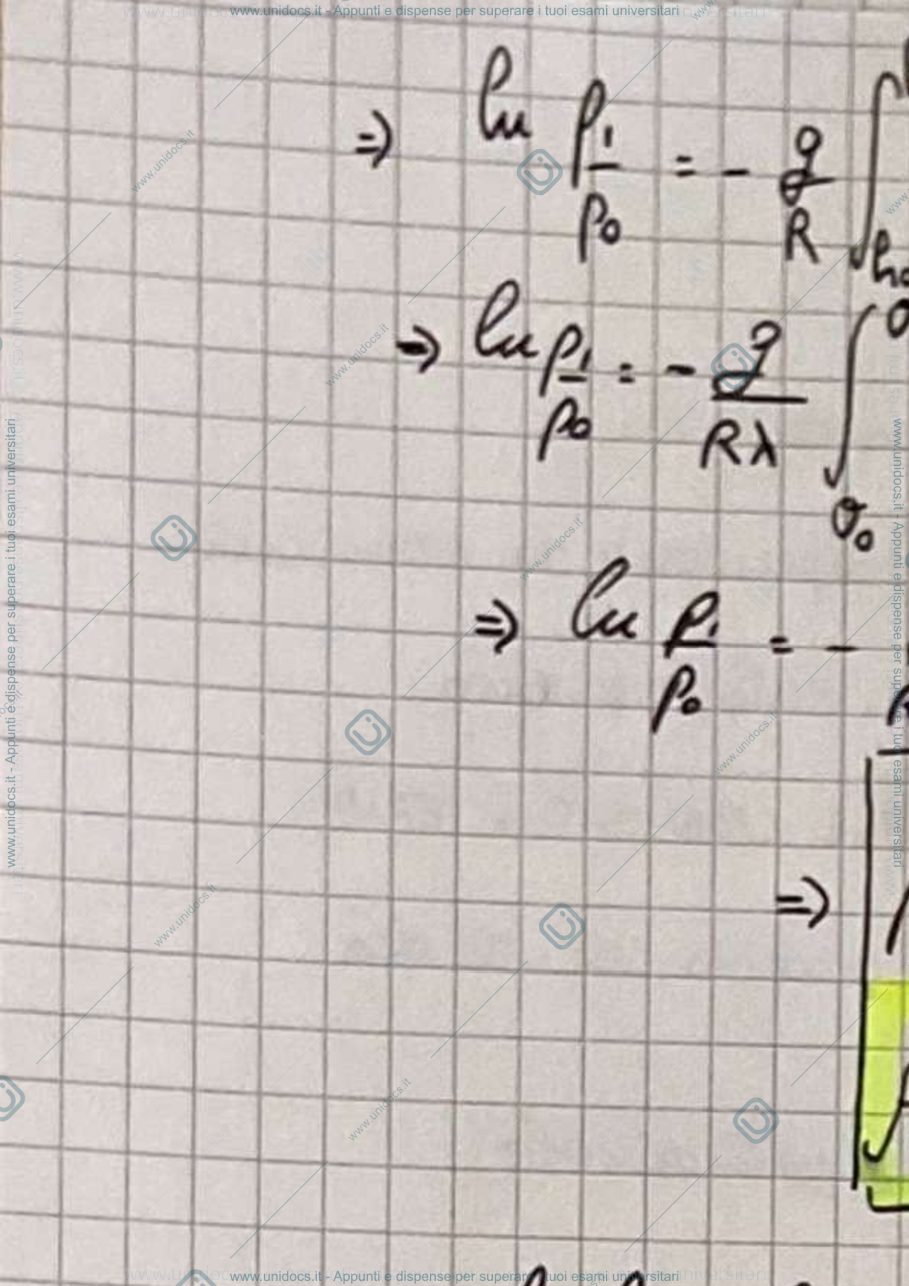 www.unidocs.it - Appunti e dispense per superare i tuoi esami universitari
⇒ ln p₁/p₀ = - g/R ∫ h₀
⇒ ln p₁/p₀ = - g/Rλ ∫ θ₀
⇒ ln p₁/p₀ = -
⇒
www.unidocs.it - Appunti e dispense per superare i tuoi esami universitari
www.unidocs.it - Appunti e dispense per superare i tuoi esami universitari
www.unidocs.it
www.unidocs.it
www.unidocs.it
www.unidocs.it
www.unidocs.it
www.unidocs.it
www.unidocs.it - Appunti e dispense per superare i tuoi esami universitari